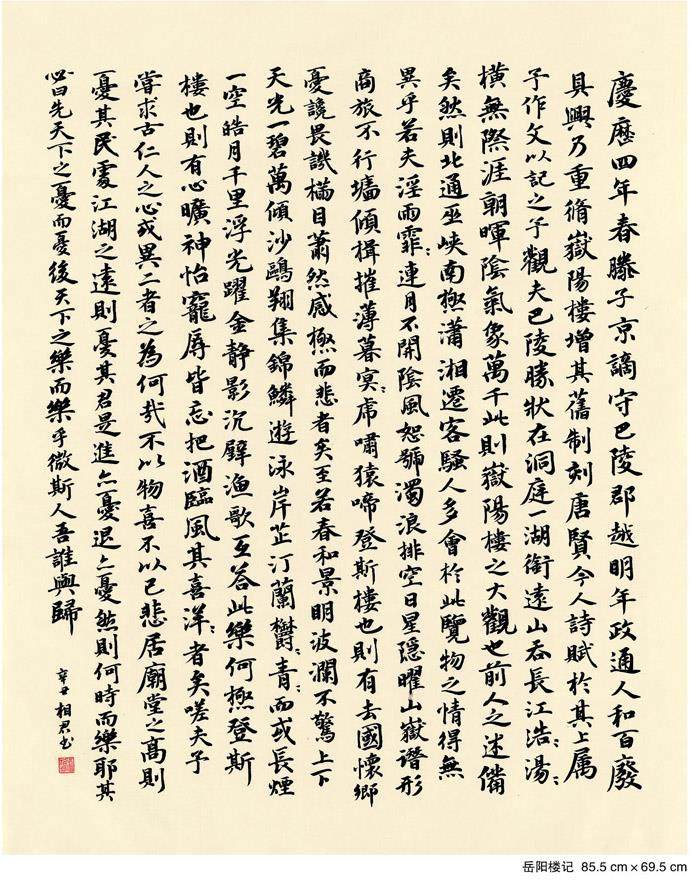 慶曆四年春滕子京謫守巴陵郡越明年政通人和百廢
具興乃重脩嶽陽樓增其舊制刻唐賢今人詩賦於其上屬
予作文以記之予觀夫巴陵勝狀在洞庭一湖銜遠山吞長江浩〻湯〻
橫無際涯朝暉陰氣象萬千此則嶽陽樓之大觀也前人之述備
矣然則北通巫峽南極瀟湘遷客騷人多會於此覽物之情得無
異乎若夫淫雨霏〻連月不開陰風怒號濁浪排空日星隱曜山嶽潛形
商旅不行墻傾楫摧薄暮冥〻虎嘯猿啼登斯樓也則有去國懷鄉
憂讒畏譏滿目蕭然感極而悲者矣至若春和景明波瀾不驚上下
天光一碧萬傾沙鷗翔集錦鱗遊泳岸芷汀蘭欝〻青〻而或長煙
一空皓月千里浮光躍金靜影沉璧漁歌互答此樂何極登斯
樓也則有心曠神怡寵辱皆忘把酒臨風其喜洋〻者矣嗟夫予
嘗求古仁人之心或異二者之為何哉不以物喜不以己悲居廟堂之高則
憂其民處江湖之遠則憂其君是進亦憂退亦憂然則何時而樂耶其
必曰先天下之憂而憂後天下之樂而樂乎微斯人吾誰與歸
辛丑相君书
岳阳楼记 85.5 cm × 69.5 cm